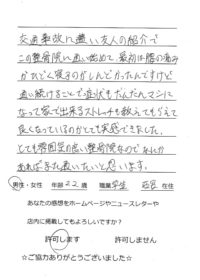 交通事故に遭い友人の紹介で
この整骨院に通い始めて、最初は腰の痛み
がひどく寝るのがしんどかったんですけど
通い続けることで症状もだんだんマシに
なって家で出来るストレッチも教えてもらえて
良くなっているのがとても実感できました。
とても雰囲気の良い整骨院なのでなにか
あればまた通いたいと思います。
男性・女性 年齢22歳 職業 学生 在住
あなたの感想をホームページやニュースレターや
店内に掲載してもよろしいですか？
許可します 許可しません
☆ご協力ありがとうございました☆